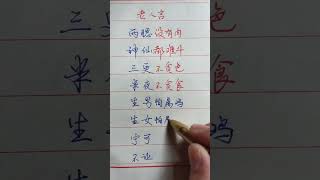 老人言
两腮没有肉
神仙都难斗
三更不贪色
半夜不贪食
生男怕属鸡
生女怕
宁可
不